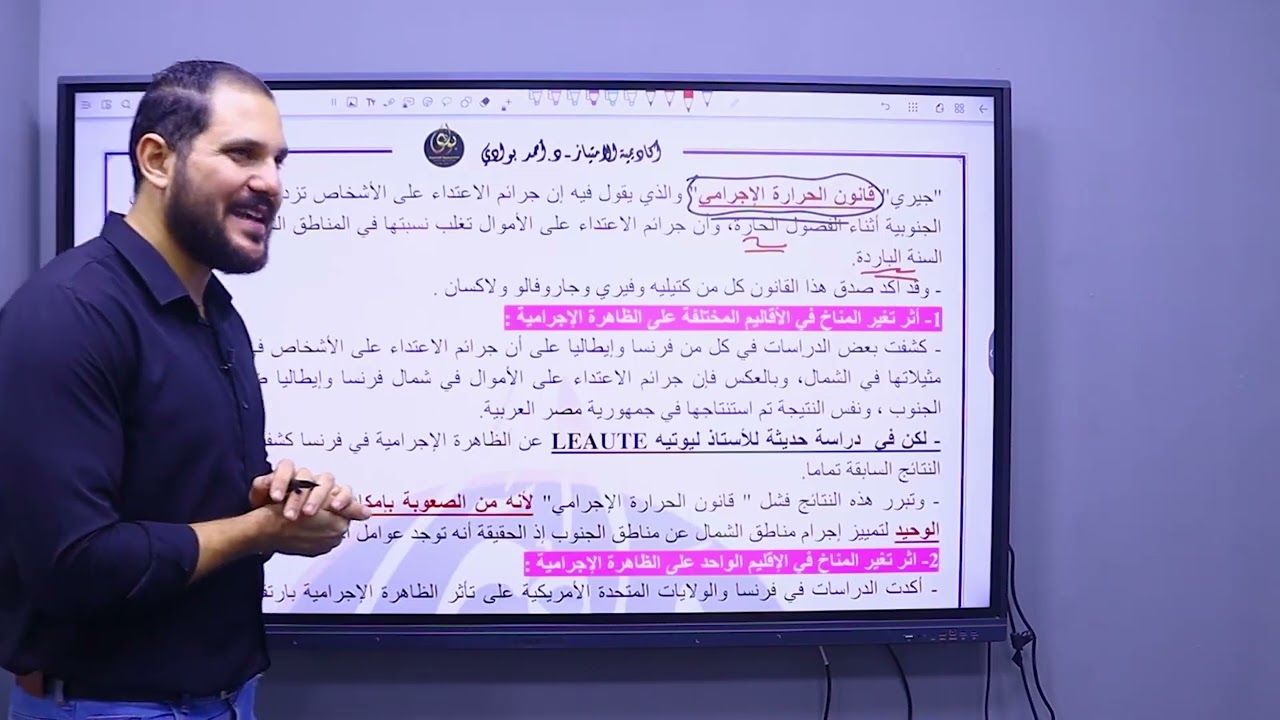 أكاديمية الامتياز - د. أحمد بوادي
"جيري" "قانون الحرارة الإجرامي" والذي يقول فيه إن جرائم الاعتداء على الأشخاص تزد
الجنوبية أثناء الفصول الحارة، وأن جرائم الاعتداء على الأموال تغلب نسبتها في المناطق
السنة الباردة.
- وقد أكد صدق هذا القانون كل من كتيليه وفيري وجاروفالو ولاكسان .
1- أثر تغير المناخ في الأقاليم المختلفة على الظاهرة الإجرامية :
- كشفت بعض الدراسات في كل من فرنسا وإيطاليا على أن جرائم الاعتداء على الأشخاص
مثيلاتها في الشمال، وبالعكس فإن جرائم الاعتداء على الأموال في شمال فرنسا وإيطاليا
الجنوب ، ونفس النتيجة تم استنتاجها في جمهورية مصر العربية.
- لكن في دراسة حديثة للأستاذ ليوتيه LEAUTE عن الظاهرة الإجرامية في فرنسا كشف
النتائج السابقة تماما.
- وتبرر هذه النتائج فشل " قانون الحرارة الإجرامي" لأنه من الصعوبة بإمكا
الوحيد لتمييز إجرام مناطق الشمال عن مناطق الجنوب إذ الحقيقة أنه توجد عوامل
2- اثر تغير المناخ في الإقليم الواحد على الظاهرة الإجرامية :
- أكدت الدراسات في فرنسا والولايات المتحدة الأمريكية على تأثر الظاهرة الإجرامية بارتف